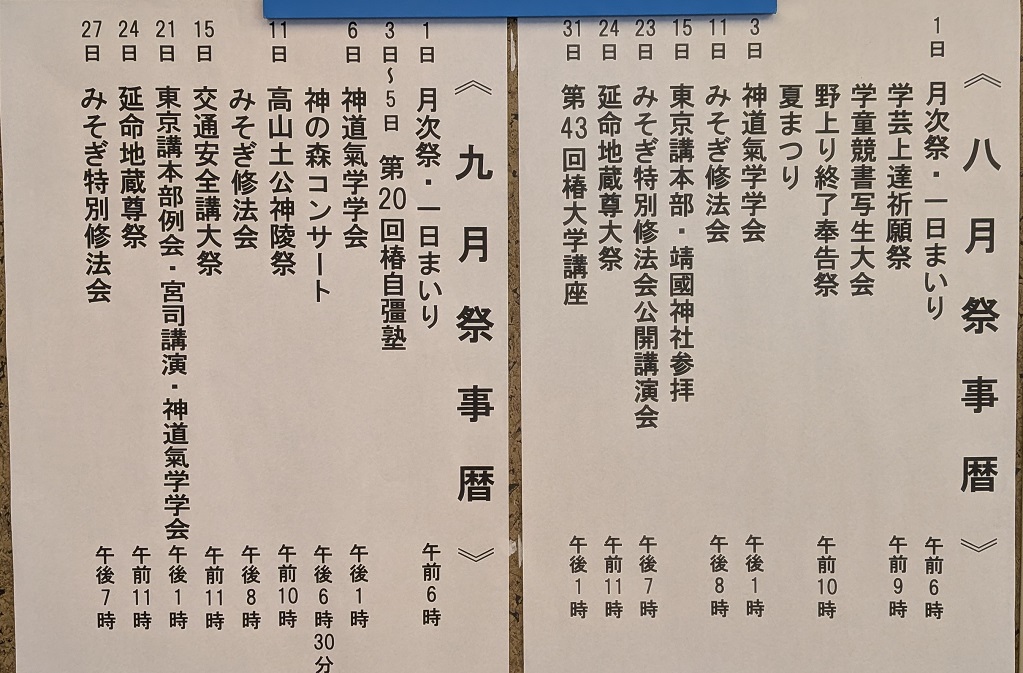 《八月祭事暦》
1日 月次祭・一日まいり 午前6時
学芸上達祈願祭 午前9時
学童競書写生大会
野上り終了奉告祭 午前10時
夏まつり
3日 神道氣学学会 午後1時
11日 みそぎ修法会 午後8時
15日 東京講本部・靖國神社参拝
23日 みそぎ特別修法会公開講演会 午後7時
24日 延命地蔵尊大祭 午前11時
31日 第43回椿大学講座 午後1時
《九月祭事暦》
1日 月次祭・一日まいり 午前6時
3日～5日 第20回椿自彊塾
6日 神道氣学学会 午後1時
神の森コンサート 午後6時30分
11日 高山土公神陵祭 午前10時
みそぎ修法会 午後8時
15日 交通安全講大祭 午前11時
21日 東京講本部例会・宮司講演・神道氣学学会 午後1時
24日 延命地蔵尊祭 午前11時
27日 みそぎ特別修法会 午後7時